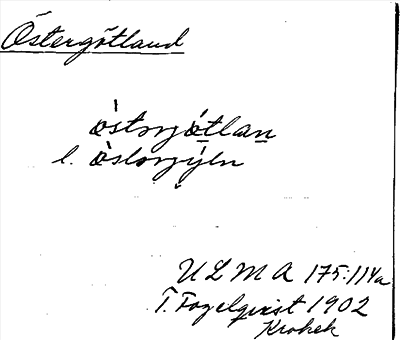 Östergötland
östərjötlan
l. östərjýln
ULMA 175:114a
T. Fogelqvist 1902
Krokek